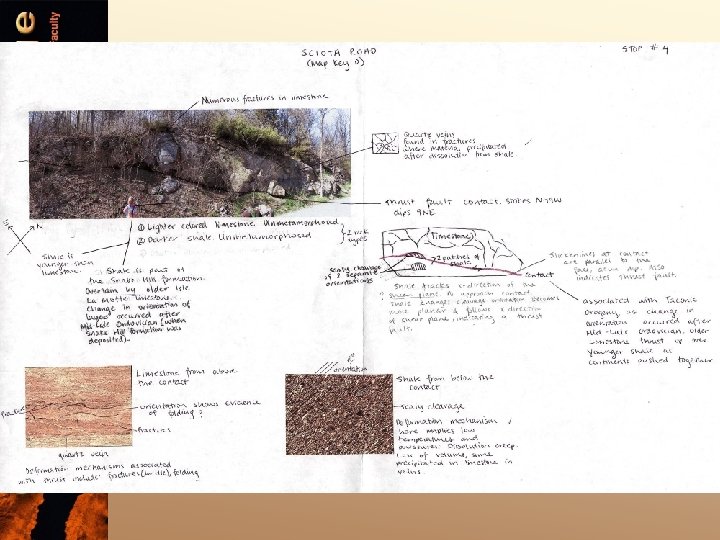 e
faculty
SCIOTA ROAD
(Map Key J)
STOP # 4
Numerous fractures in limestone
Quartz veins
found in fractures
where material precipitated
after dissolution from shale.
thrust fault contact. strikes N79W
dips 9NE
① Lighter colored limestone. Unmetamorphosed
② Darker shale. Unmetamorphosed
2 rock
types
Shale is
younger than
limestone.
Shale is part of
the Snake Hill formation.
Overlain by older Isle
La Motte limestone.
Change in orientation of
layers occurred after
Mid-Late Ordovician (when
Snake Hill formation was
deposited).
scaly cleavage
of 2 separate
orientations
limestone
2 patches of
shale
contact
Shale tracks direction of the
shear plane. As approach contact
cleavage orientation becomes
more planar & follows direction
of shear plane, indicating a thrust
fault.
Slickenlines at contact
are parallel to the
fault plane dip. Also
indicates thrust fault.
associated with Taconic
Orogeny as change in
orientation occurred after
Mid-Late Ordovician. Older
limestone thrust up over
younger shale as
continents pushed together
Limestone from above
the contact
orientation shows evidence
of folding?
fracture
fractures
quartz vein
Deformation mechanisms associated
with thrust include fractures (brittle), folding
orientation
Shale from below the
contact
scaly cleavage
Deformation mechanism
here implies low
temperatures and
pressures. Dissolution creep.
Loss of volume, some
precipitated in limestone in
veins.